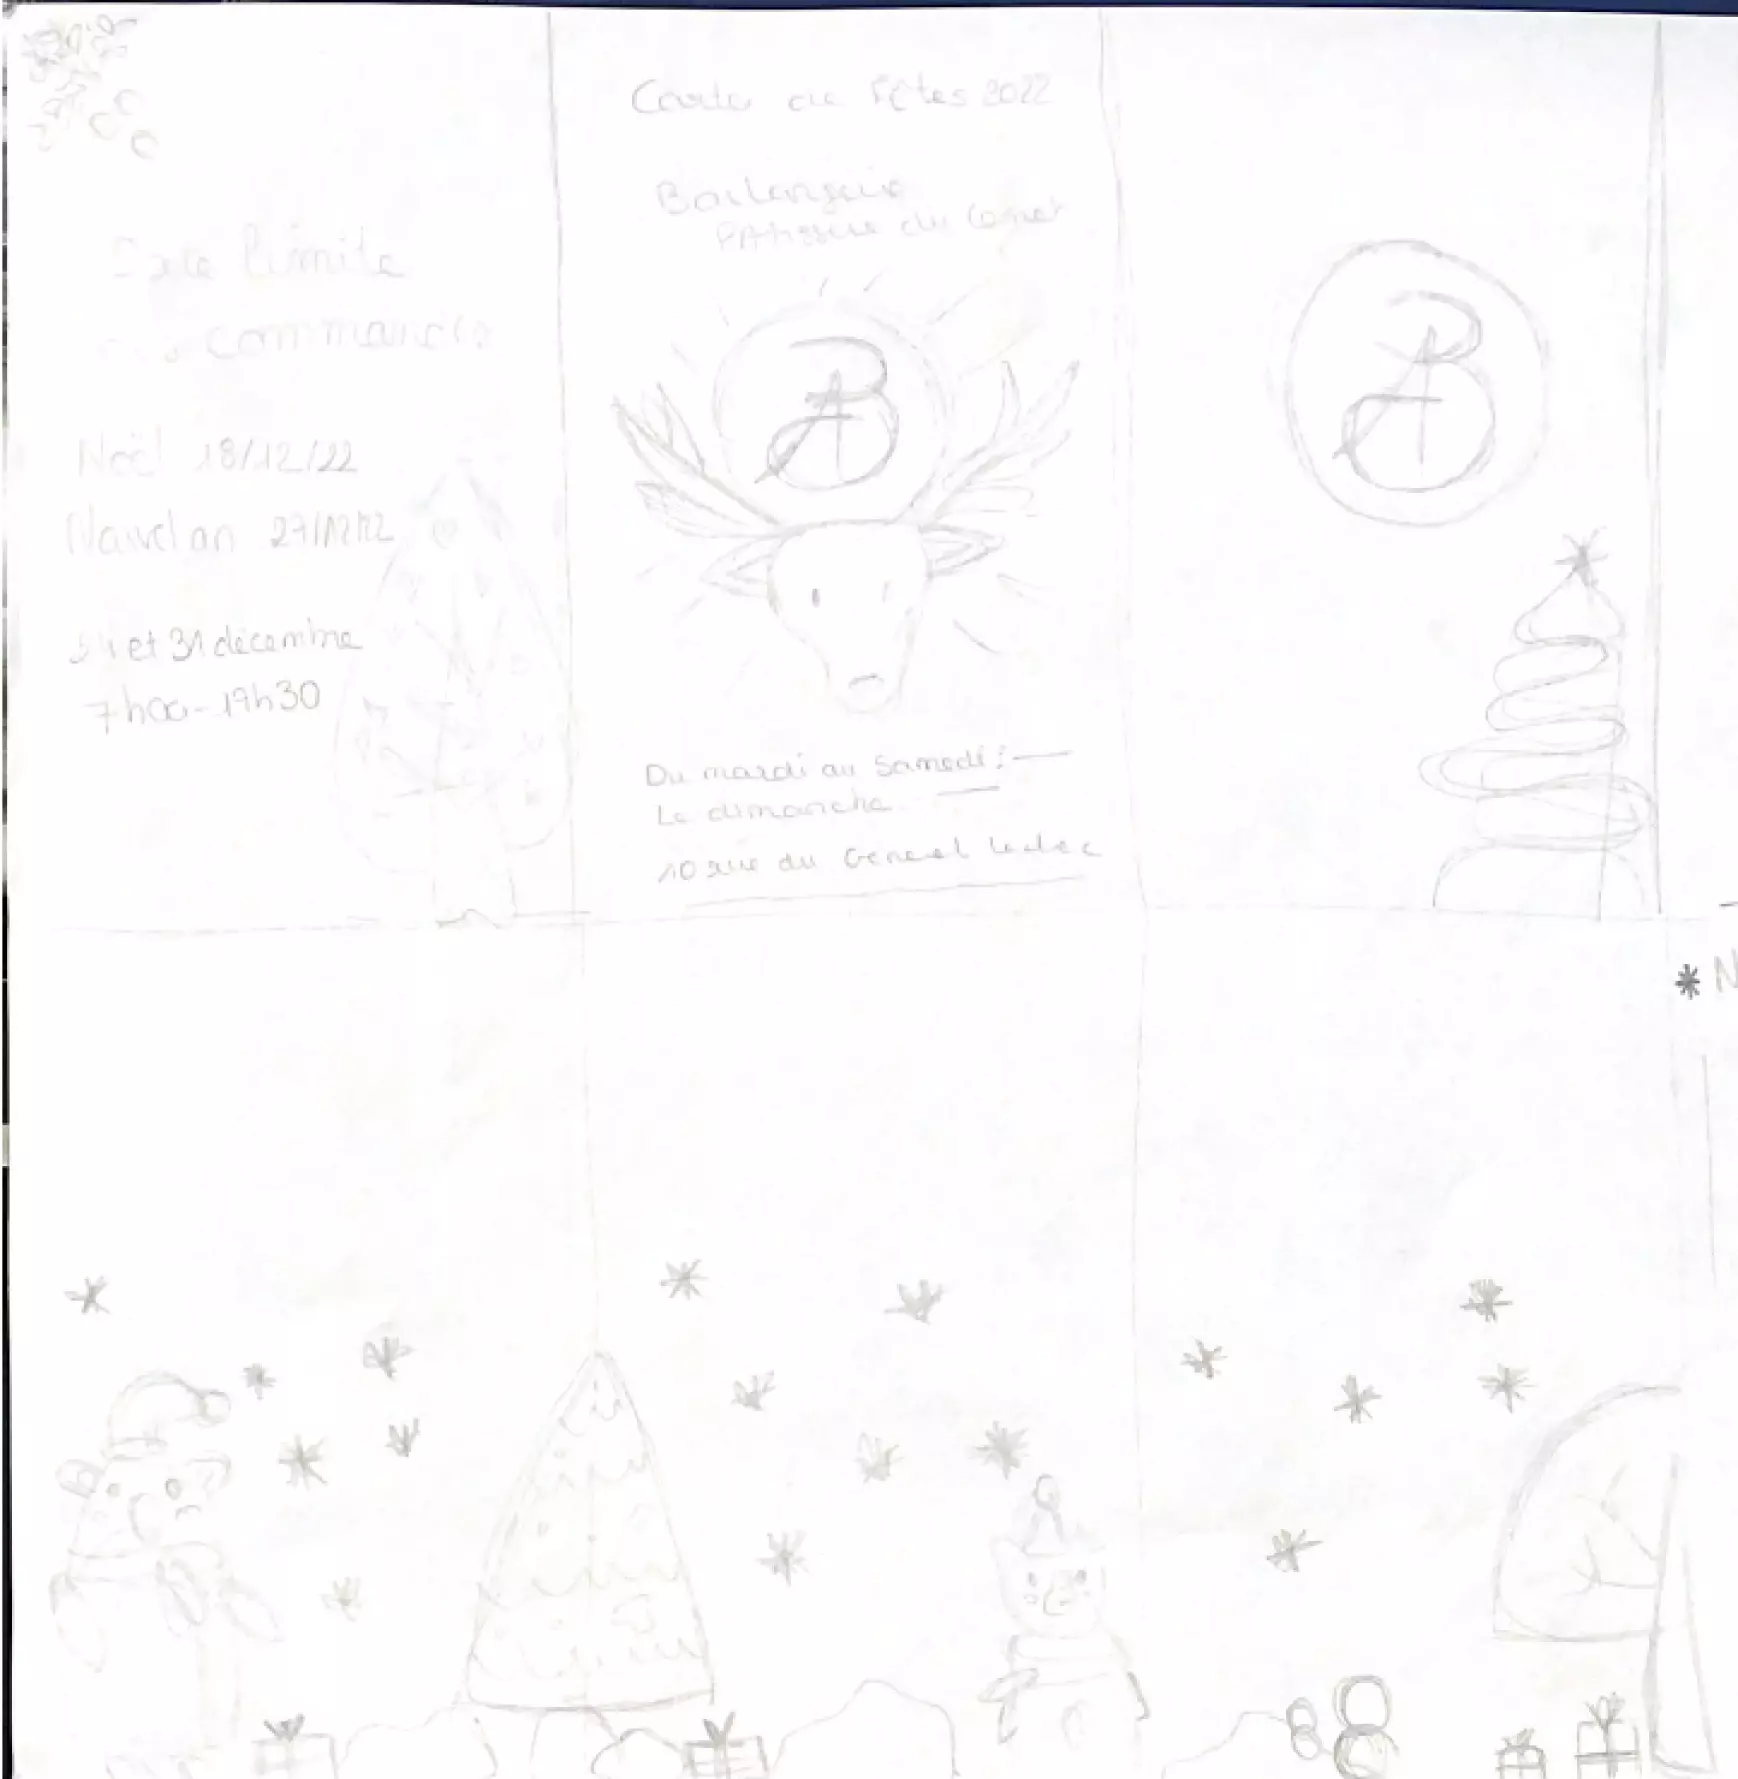 limite
commande
Noël 18/12/22
Nouvel an 27/12/22
et 31 décembre
7h00-19h30
Carte de Fêtes 2022
Boulangerie
PAtisserie du
AB
Du mardi au Samedi :
Le dimanche
10 rue du General leclec
AB
* N